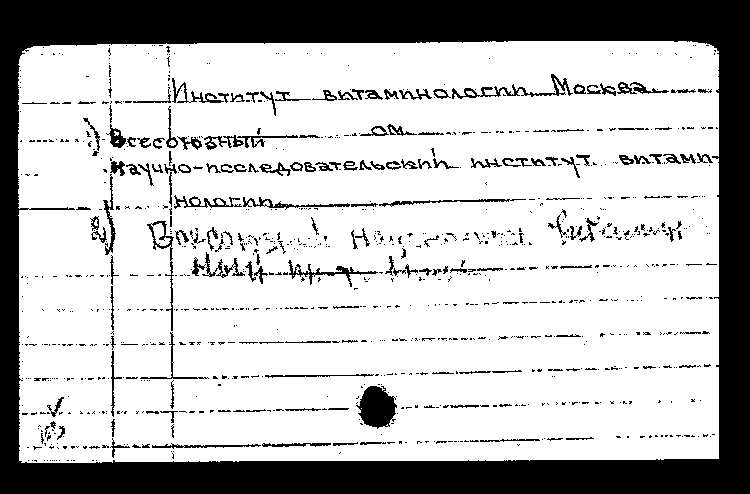 Институт витаминологии. Москва.
см.
1) Всесоюзный
научно-исследовательский институт витами-
нологии
2) Всесоюзный научно-иссл. витамин
ный